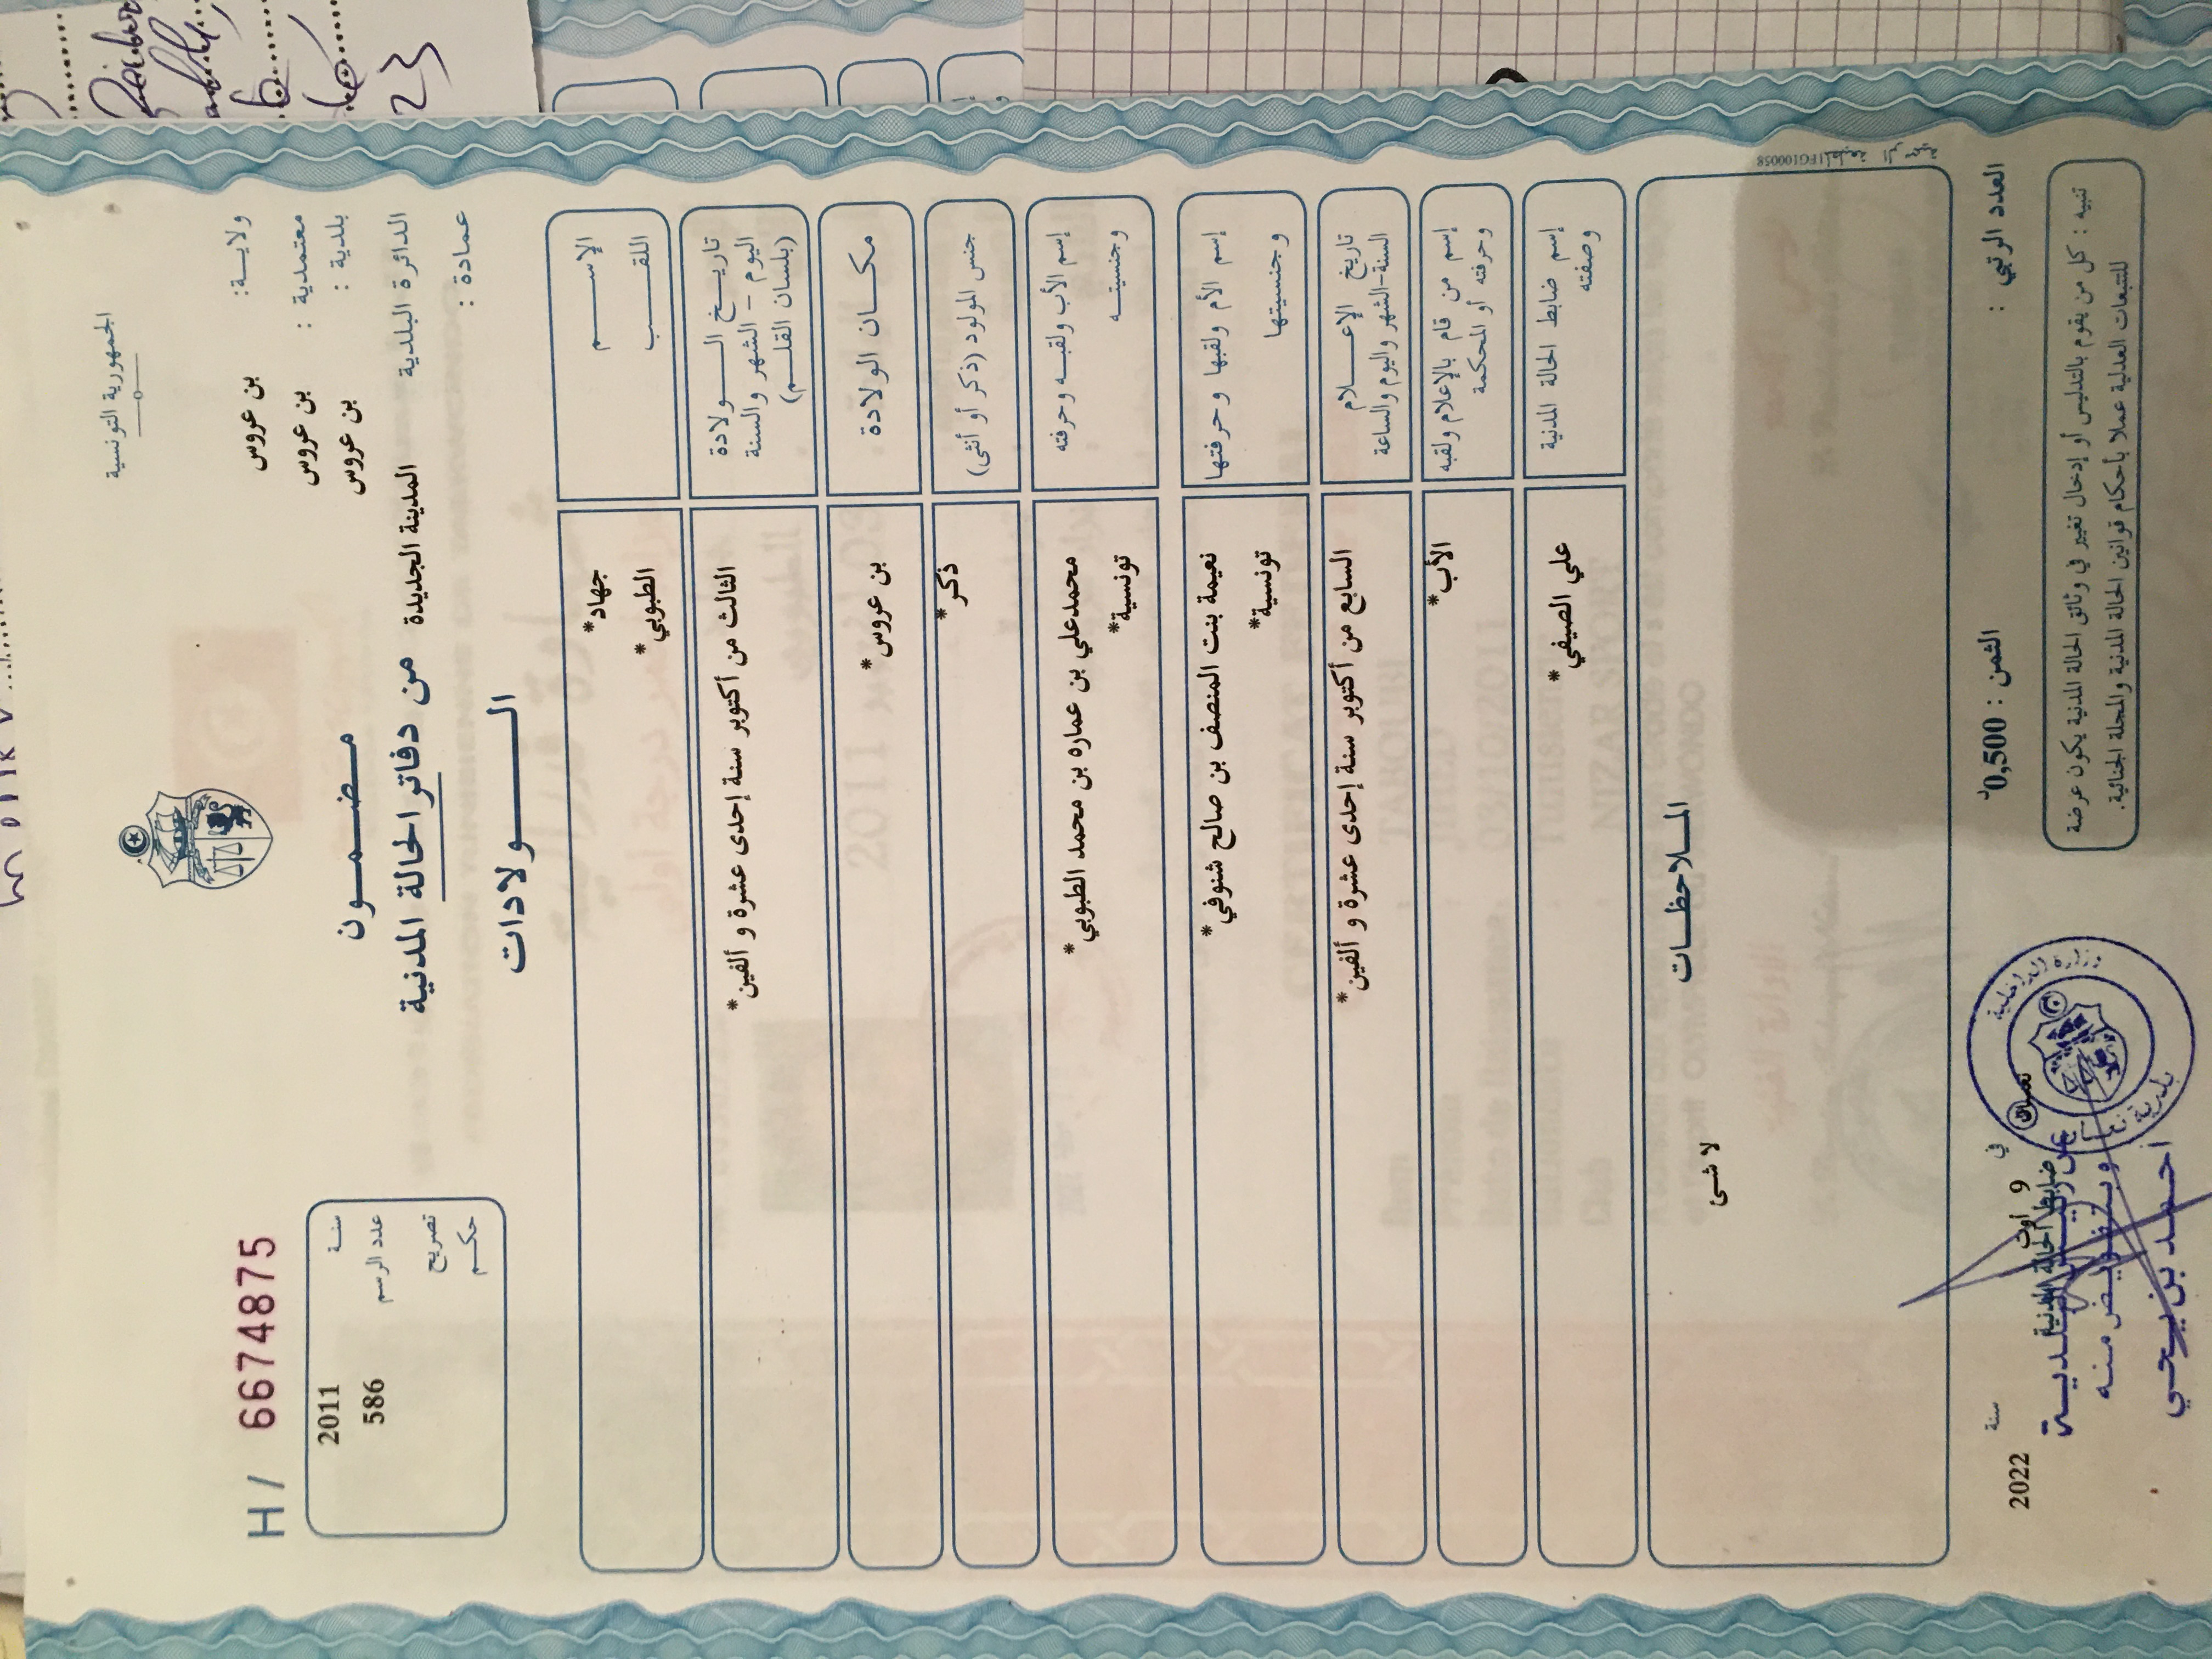 الجمهورية التونسية
ولايـــة: بن عروس
معتمدية : بن عروس
بلدية : بن عروس
الدائرة البلدية المدينة الجديدة
عمادة :
H / 6674875
سنة 2011
عدد الرسم 586
تصريح
حكم
مضمون
من دفاتر الحالة المدنية
الولادات
الإســـم جهاد*
اللقـــب الطبوبي*
تاريــخ الــولادة
اليوم - الشهر والسنة
(بلسان القلــم)
الثالث من أكتوبر سنة إحدى عشرة و ألفين*
مكــان الولادة بن عروس*
جنس المولود (ذكر أو أنثى) ذكر*
إسم الأب ولقبــه وحرفته
وجنسيتــه
محمدعلي بن عماره بن محمد الطبوبي*
تونسية*
إسم الأم ولقبها وحرفتها
وجنسيتها
نعيمة بنت المنصف بن صالح شنوفي*
تونسية*
تاريخ الإعــلام
السنة-الشهر واليوم والساعة
السابع من أكتوبر سنة إحدى عشرة و ألفين*
إسم من قام بالإعلام ولقبه
وحرفته أو المحكمة
الأب*
إسم ضابط الحالة المدنية
وصفته
علي الصيفي*
الملاحظــات
لا شئ
العدد الرتبي :
الثمن : 0,500د
في 9 أوت سنة 2022
ضابط الحالة المدنية
وبتفويض منه
أحمد بن يحي
وزارة الداخلية
تنبيه : كل من يقوم بالتدليس أو إدخال تغيير في وثائق الحالة المدنية يكون عرضة
للتتبعات العدلية عملا بأحكام قوانين الحالة المدنية والمجلة الجنائية.
23